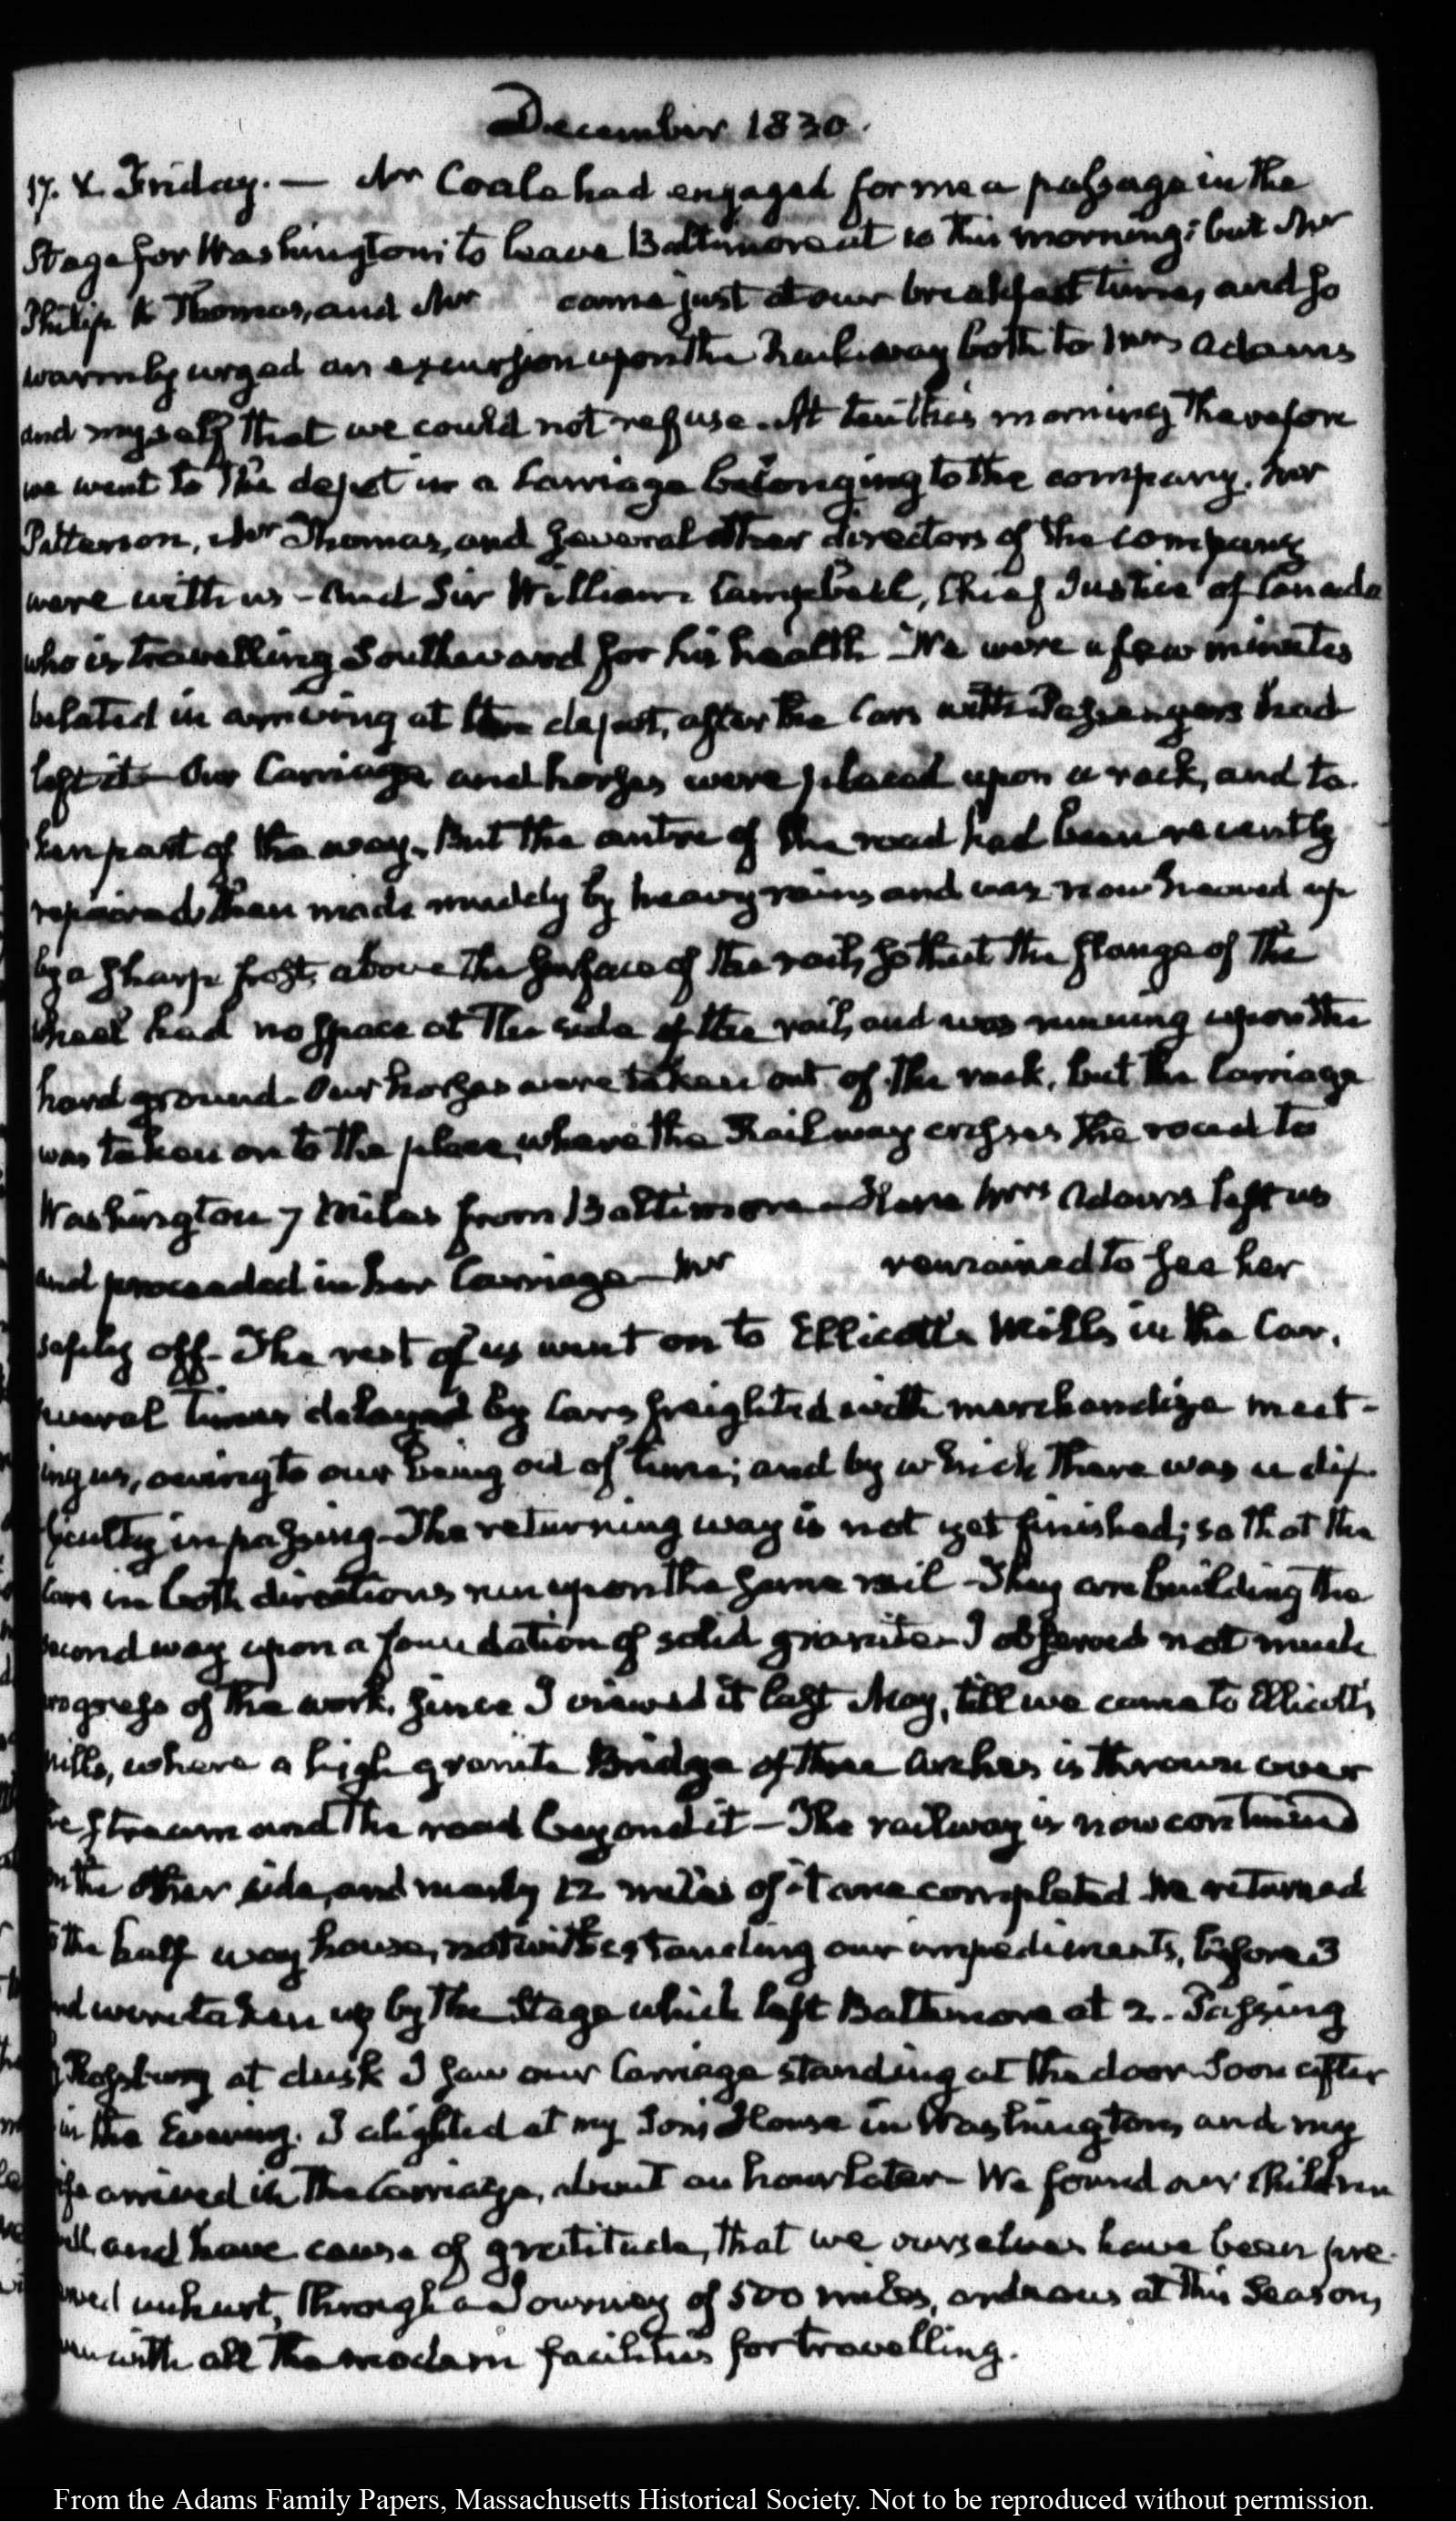 December 1830.
17. Friday. — Mr Coale had engaged for me a passage in the
Stage for Washington; to leave Baltimore at 10 this morning; but Mr
Philip E Thomas, and Mr came just at our breakfast time, and so
warmly urged an excursion upon the Rail-way both to Mrs Adams
and myself that we could not refuse. At ten this morning therefore
we went to the depot in a Carriage belonging to the company. Mr
Patterson, Mr Thomas, and several other directors of the company
were with us – And Sir William Campbell, Chief Justice of Canada
who is travelling Southward for his health – We were a few minutes
belated in arriving at the depot, after the Cars with Passengers had
left it – Our Carriage and horses were placed upon a rack, and ta-
ken part of the way. But the centre of the road had been recently
repaired then made muddy by heavy rains and was now heaved up
by a sharp frost, above the surface of the rail, so that the flange of the
wheel had no space at the side of the rail, and was running upon the
hard ground. Our horses were taken out of the rack, but the Carriage
was taken on to the place, where the Railway crosses the road to
Washington 7 Miles from Baltimore – Here Mrs Adams left us
and proceeded in her Carriage – Mr remained to see her
safely off – The rest of us went on to Ellicott's Mills in the Car,
several times delayed by Cars freighted with merchandize meet-
ing us, owing to our being out of time; and by which there was a dif-
ficulty in passing – The returning way is not yet finished; so that the
Cars in both directions run upon the same rail – They are building the
second way upon a foundation of solid granite – I observed not much
progress of the work, since I viewed it last May, till we came to Ellicott's
mills, where a high granite Bridge of three Arches is thrown over
the stream and the road beyond it – The railway is now continued
on the other side, and nearly 12 miles of it are completed. We returned
to the half way house, notwithstanding our impediments, before 3
and were taken up by the Stage which left Baltimore at 2. Passing
Rossburg at dusk I saw our Carriage standing at the door. Soon after
in the Evening. I alighted at my Son's House in Washington, and my
wife arrived in the Carriage, about an hour later – We found our Children
well, and have cause of gratitude, that we ourselves have been pre-
served unhurt, through a Journey of 500 miles, arduous at this Season,
even with all the modern facilities for travelling.
From the Adams Family Papers, Massachusetts Historical Society. Not to be reproduced without permission.